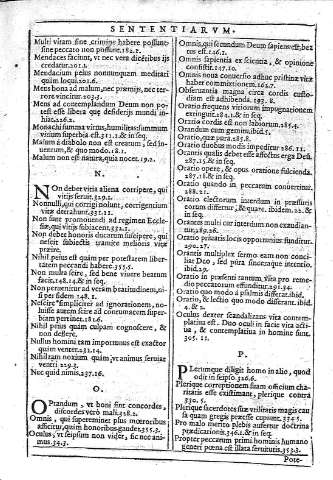 SENTENTIARVM.
Multi vitam sine crimine habere possunt,
sine peccato non possunt. 182.1.
Mendaces faciunt, vt nec vera dicentibus
credatur. 201.1.
Mendacium peius nonnunquam meditari
quàm loqui. 201.6.
Mens bona ad malum, nec præmijs, nec ter-
rore vincitur. 293.1.
Mens ad contemplandum Deum non po-
test esse libera que desiderijs mundi in-
hiat. 226.2.
Monachi summa virtus, humilitas: summum
vitium superbia est. 311.2. & in seq.
Malum à diabolo non est creatum, sed in-
uentum, & quo modo. 18.1.
Malum non est natura, quia nocet. 19.2.
N.
NOn debet vitia aliena corripere, qui
vitijs seruit. 329.2.
Nonnulli, qui corrigi nolunt, corrigentium
vitæ detrahunt. 331.11.
Non sunt promouendi ad regimen Eccle-
siæ, qui vitijs subiacent. 322.1.
Non debet honoris ducatum suscipere, qui
nescit subiectis tramite melioris vitæ
præire.
Nihil peius est quàm per potestatem liber-
tatem peccandi habere. 355.5.
Non multa scire, sed bene viuere beatum
facit. 148.14. & in seq.
Non peruenitur ad veram beatitudinem, ni-
si per fidem 148.1.
Nescire simpliciter ad ignorationem, no-
luisse autem scire ad contumacem super-
biam pertinet. 181.6.
Nihil prius quàm culpam cognoscere, &
non deflere.
Nullus homini tam importunus est exactor
quàm venter. 231.14.
Nihil tam noxium quàm, vt animus seruiat
ventri 229.3.
Nec quid nimis. 237.16.
O.
OPtandum, vt boni sint concordes,
discordes verò mali. 318.2.
Omnis, qui superminet plus mœroribus
afficitur, quàm honoribus gaudet. 355.3.
Oculus, vt seipsum non videt, sic nec ani-
mus. 34.3.
Omnis, qui secundum Deum sapiens est, bea-
tus est. 146.1.
Omnis sapientia ex scientia, & opinione
consistit. 147.10.
Omnis noua conuersio adhuc pristinæ vitæ
habet commixtionem. 166.7.
Obseruantia magna circa cordis custo-
diam est adhibenda. 193. 8.
Oratio frequens vitiorum impugnationem
extinguit. 284.1. & in seq.
Oratio cordis est non labiorum. 285.3.
Orandum cum gemitu, ibid. 5.
Oratio, quæ pura. 285.8.
Oratio duobus modis impeditur 286.11.
Orantis qualis debet esse affectus erga Deũ.
287.15. & in seq.
Oratio opere, & opus oratione fulciendum.
287.18. & in seq.
Oratio quando in peccatum conuertitur.
288.21.
Oratio electorum interdum in præssuris
eorum differtur, & quare, ibidem. 22. &
in seq.
Orantes multi cur interdum non exaudian-
tur. 289.26. & in seq.
Oratio priuatis locis opportunius funditur.
290.27.
Orantis multiplex sermo eam non conci-
liat Deo, sed pura sinceraque intentio.
ibid. 29.
Oratio in præsenti tantum vita pro reme-
dio peccatorum effunditur. 291.34.
Oratio quo modo à psalmis differat. ibid.
Oratio, & lectio quo modo differant. ibid.
4. & 2.
Oculus dexter scandalizans vita contem-
platiua est. Duo oculi in facie vita acti-
ua, & contemplatiua in homine sunt.
305. 11.
P.
PLerumque diligit homo in alio, quod
odit in seipso. 326.6.
Plerique correptionem suam officium cha-
ritatis esse existimant, plerique contra
330.5.
Plerique sacerdotes suæ vtilitatis magis cau-
sa quàm gregis præesse cupiunt. 334.5.
Pro malo merito plebis aufertur doctrina
prædicationis. 346.1. & in seq.
Propter peccatum primi hominis humano
generi pœna est illata seruitutis. 353.3.
Pote-